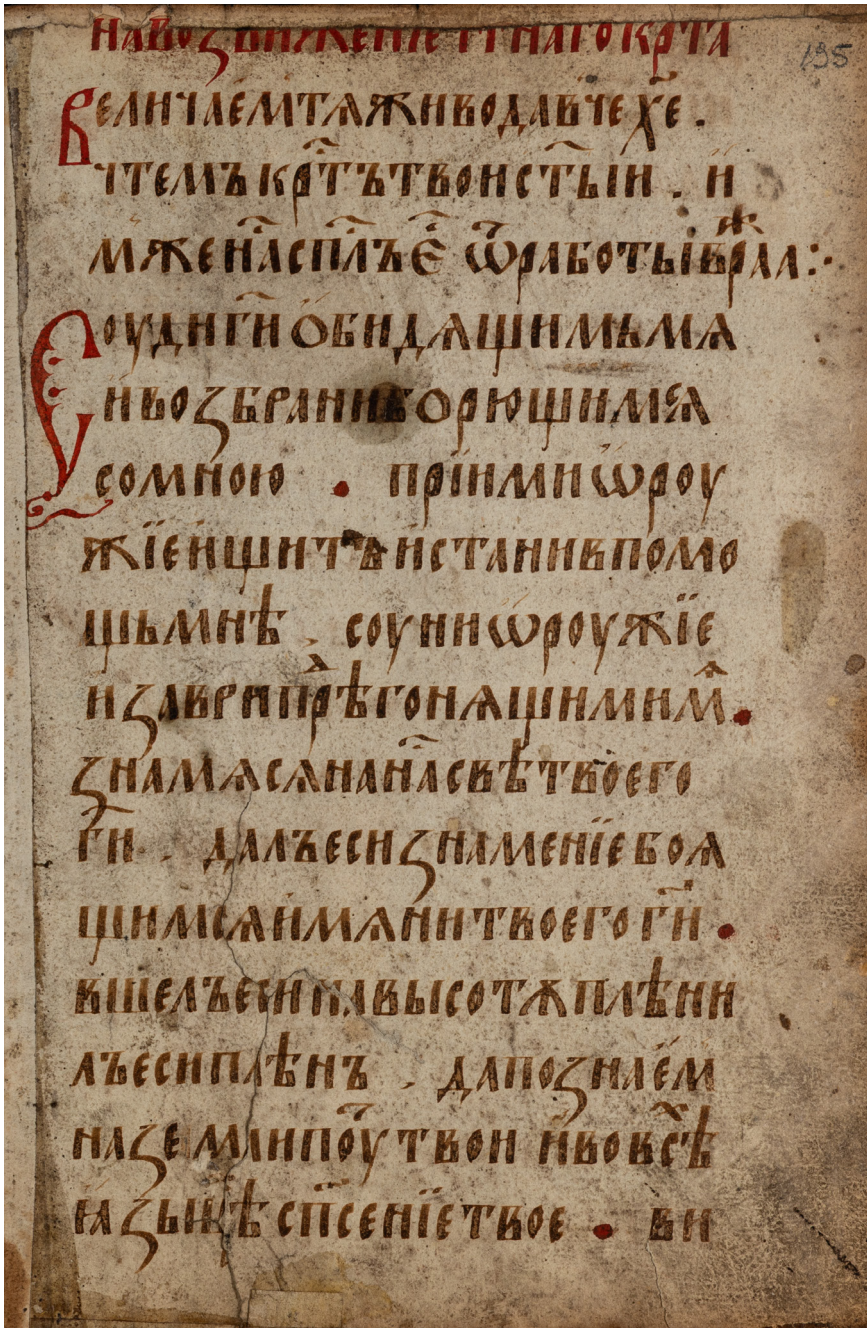 на возⸯдвиженїе гⷭ҇тнаго крⷭ҇та
135
Величаемтѧживодавчех҃е .
чтемъкрⷭ҇тътвоистыⷯи . и
мжен҃аспⷭ҇лъе҃ ѿработыївраⷤла :·
Соудигⷭ҇иобидѧщимъмѧ
ивоꙁбраниборющимсѧ
сомною • прїимиѡроу
жїеищитъистанивпомо
щьмнѣ . соуниѡроужїе
иꙁавриⷭ҇прⷣѣгонѧщимимѧ •
ꙁнамѧсѧнан҃асвѣтвоего
гⷭ҇и . далъесиꙁнаменїебоѧ
щимсѧимѧнитвоегогⷭ҇и •
вшелъесинавысотѫплѣни
лъесиплѣнъ . дапоꙁнаем
наꙁемлипоⷮутвои ивовсⷯѣ
ꙗꙁыцѣсп҃сенїетвое • ви